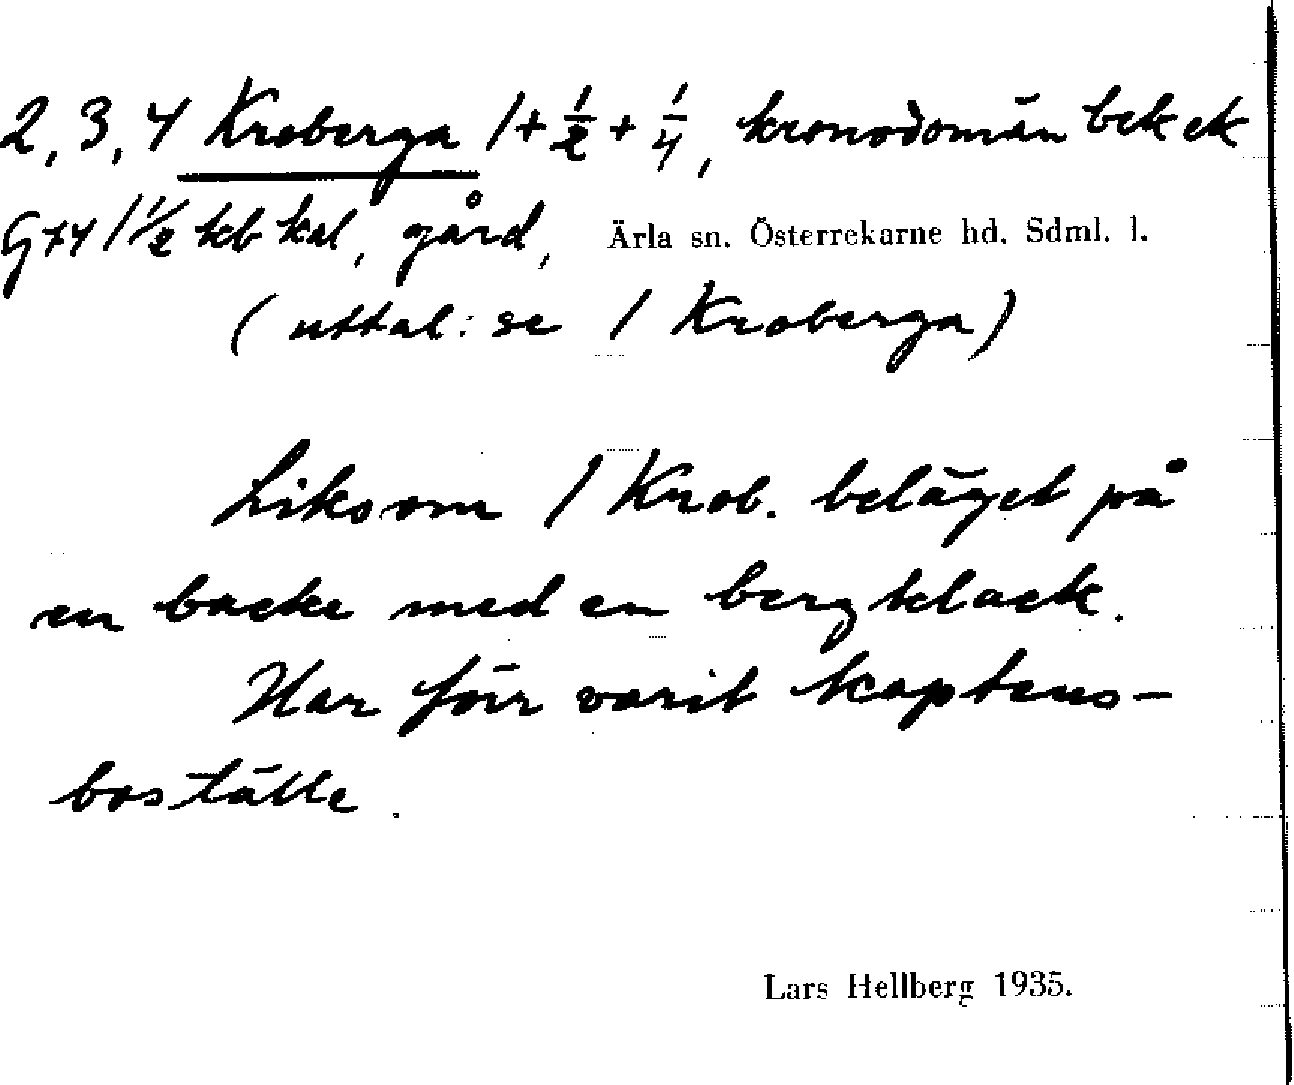 2, 3, 4 Kroberga 1 + 1/2 + 1/4, kronodomän bek ek
G 74 1 1/2 kb kal, gård, Ärla sn. Österrekarne hd. Sdml. l.
(uttal: se 1 Kroberga)
Liksom 1 Krob. beläget på
en backe med en bergklack.
Har förr varit kaptens-
boställe.
Lars Hellberg 1935.